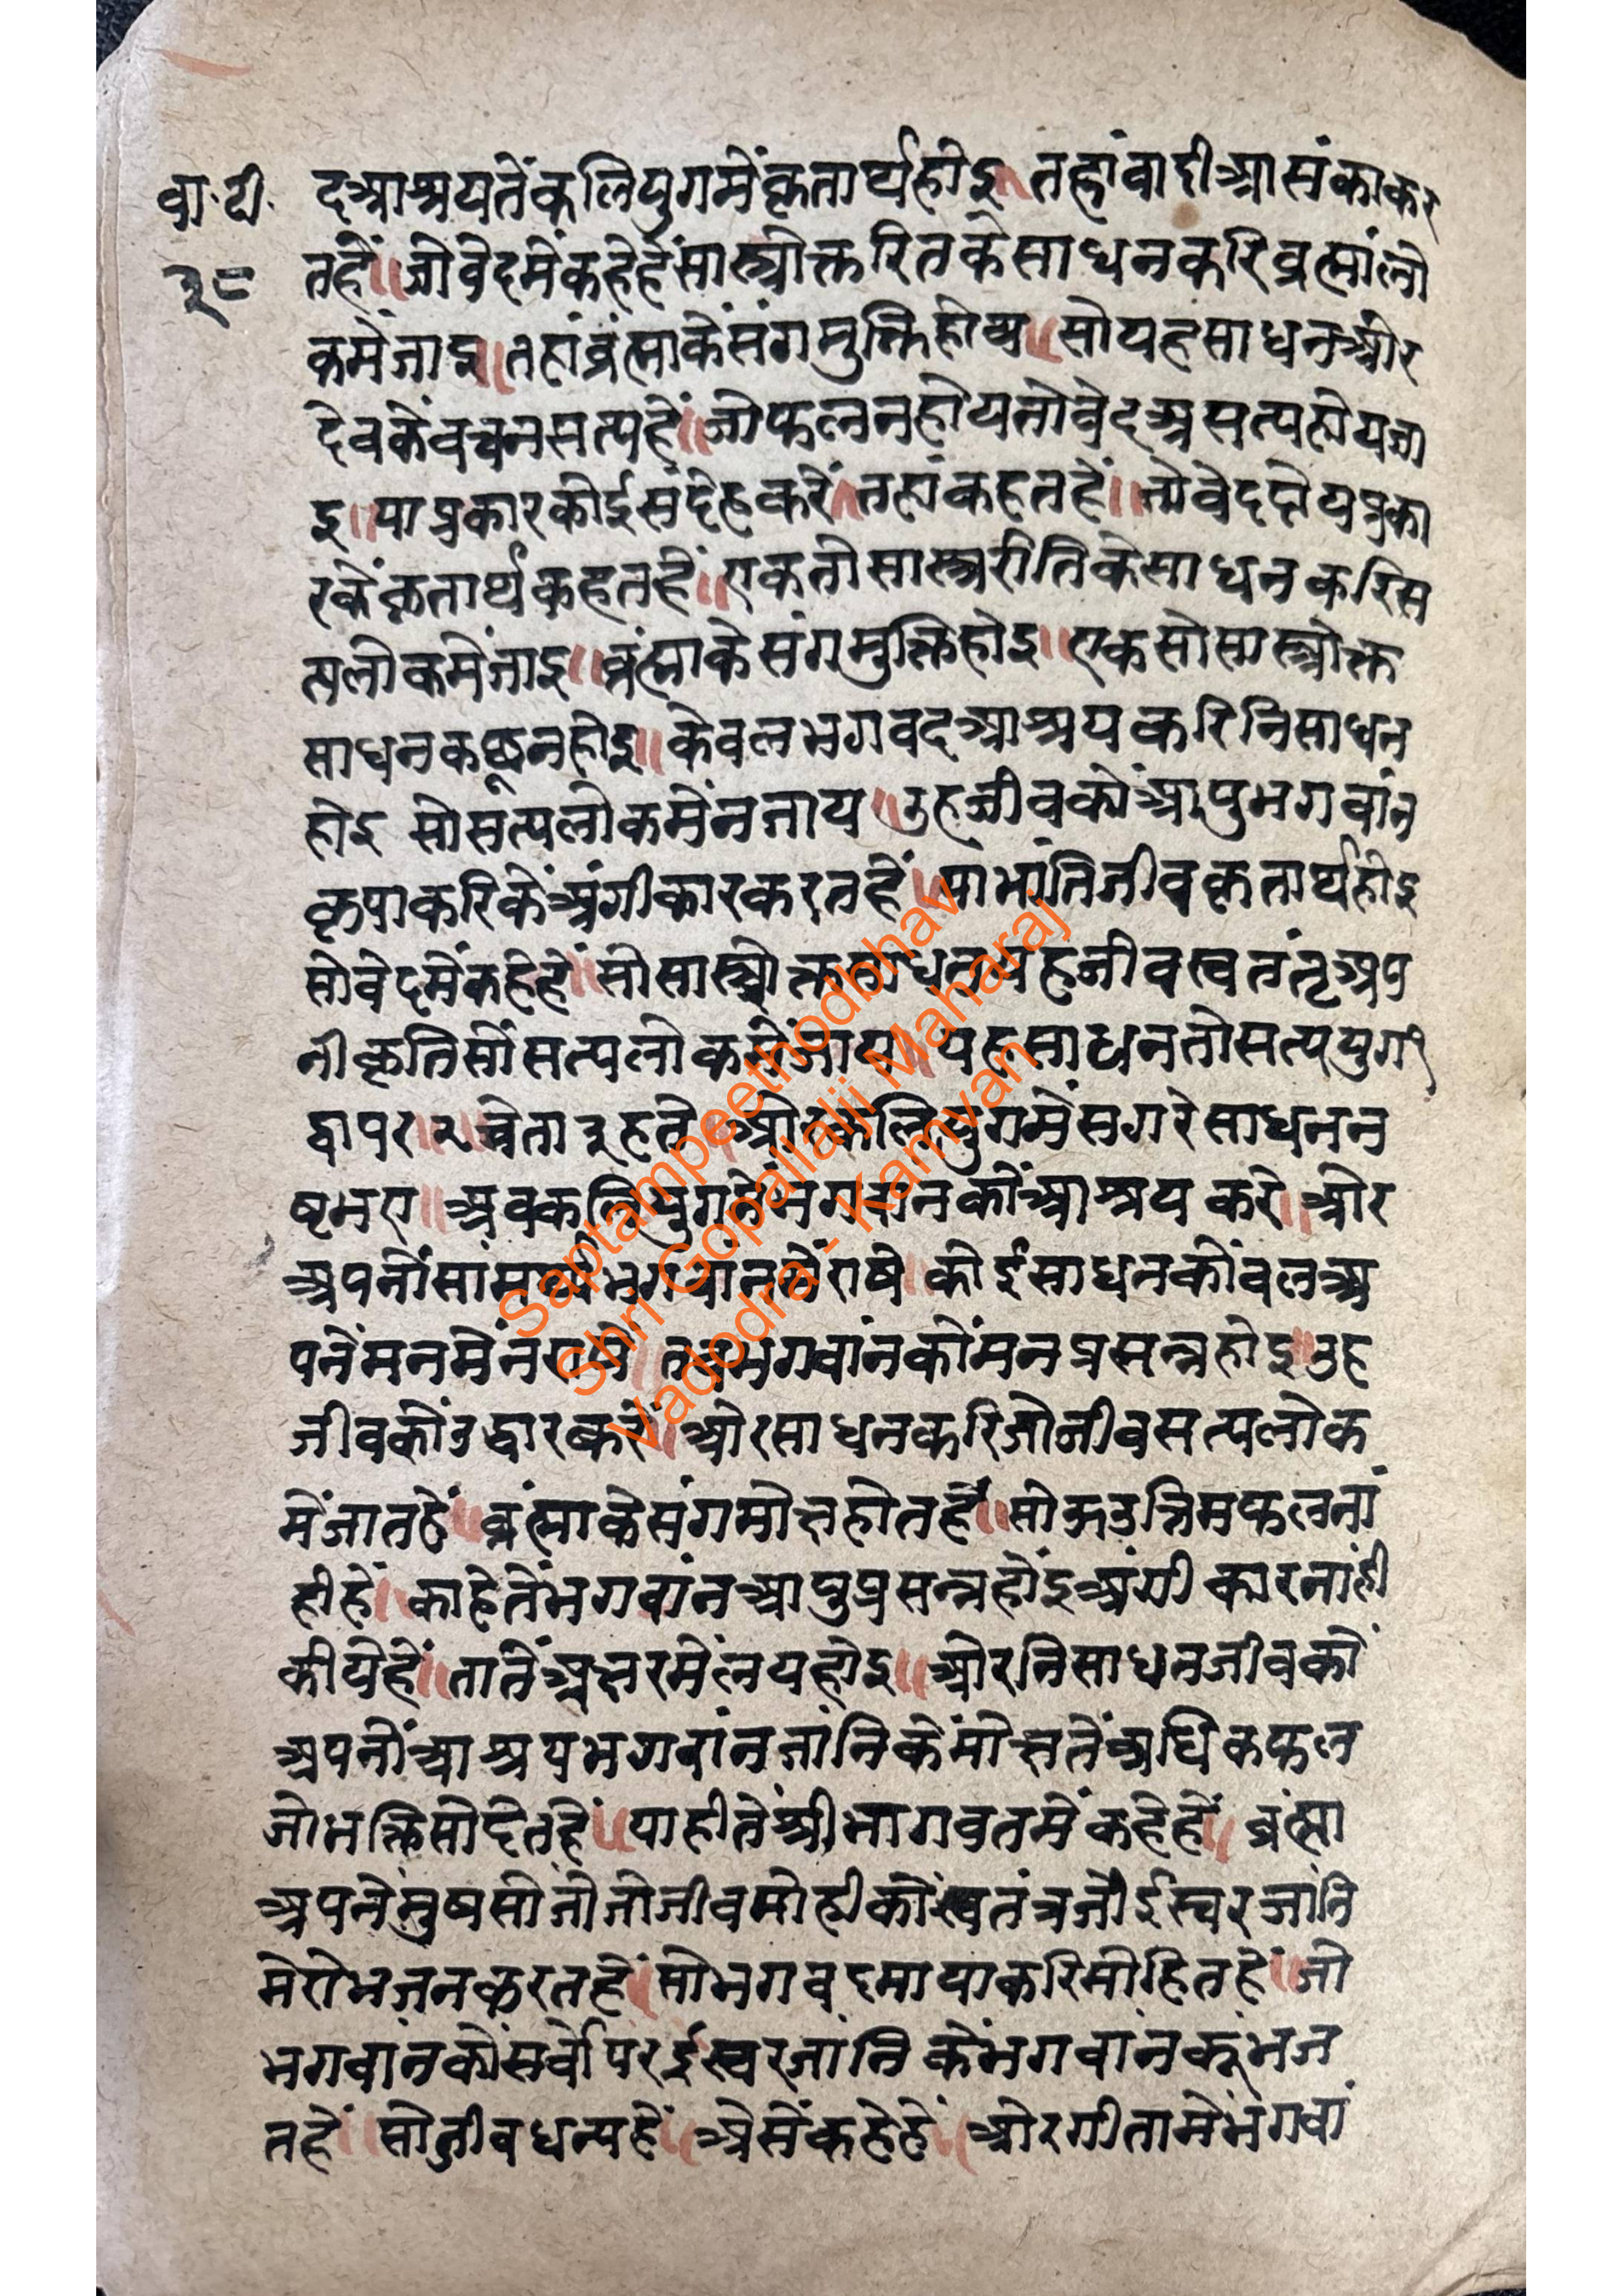 वा.टी.
३८
दआश्रयतेंकलियुगमेंकृतार्थहोइ॥तहांवादीआसंकाकर
तहें॥जोवेदमेंकहेहेंसास्त्रोक्तरितकेसाधनकरिब्रह्मांलो
कमेंजाइ॥तहांब्रंह्माकेसंगमुक्तिहोय॥सोयहसाधनओर
देवकेंवचनसत्यहें॥जोफलनहोयतोवेदअसत्यहोयजा
इ॥याप्रकारकोईसंदेहकरें॥तहांकहतहें॥तोवेददोयप्रका
रकेंकृतार्थकहतहें॥एकतोसास्त्ररीतिकेसाधनकरिस
त्यलोकमेंजाइ॥ब्रंह्माकेसंगमुक्तिहोइ॥एकसोसास्त्रोक्त
साधनकछूनहोइ॥केवलभगवदआश्रयकरिनिसाधन
होइ सोसत्यलोकमेंनजाय॥उहजीवकोंआपुभगवांन
कृपाकरिकेंअंगीकारकरतहें॥याभांतिजीवकृतार्थहोइ
सोवेदमेंकहेहें॥सोसास्त्रोक्तसाधनयहजीवस्वतंतृअप
नीकृतिसोंसत्यलोकमेंजाय॥यहसाधनतोसत्ययुग१
द्वापर॥२॥त्रेता३हते॥ओरकलियुगमेंसगरेसाधनन
ष्टभए॥अबकलियुगतेंभगवांनकोंआश्रयकरे॥ओर
अपनोंसांमर्थ्यभगवांनमेंराषे॥कोईसाधनकोंबलअ
पनेंमनमेंनराषे॥तबभगवांनकोंमनप्रसन्नहोइ॥उह
जीवकोंउद्धारकरें॥ओरसाधनकरिजोजीवसत्यलोक
मेंजातहें॥ब्रंह्माकेसंगमोक्षहोतहें॥सोऊउत्तिमफलनां
हीहें॥काहेतेंभगवांनआपुप्रसन्नहोंइअंगीकारनांही
कीयेहें॥तातेंअक्षरमेंलयहोइ॥ओरनिसाधनजीवकों
अपनोंआश्रयभगवांनजांनिकेंमोक्षतेंअधिकफल
जोभक्तिसोदेतहें॥याहीतेंश्रीभागवतमेंकहेहें॥ब्रंह्मा
अपनेमुषसोंजोजोजीवमोहीकोंस्वतंत्रजोईस्वरजांनि
मेरोभजनकरतहें॥सोभगवदमायाकरिमोहितहें॥जो
भगवांनकोंसर्वोपरईस्वरजांनिकेंभगवांनकूंभज
तहें॥सोजीवधन्यहें॥अेसेंकहेहें॥ओरगीतामेंभगवां
Saptampeethodbhav
Shri Gopallalji Maharaj
Vadodra - Kamvan